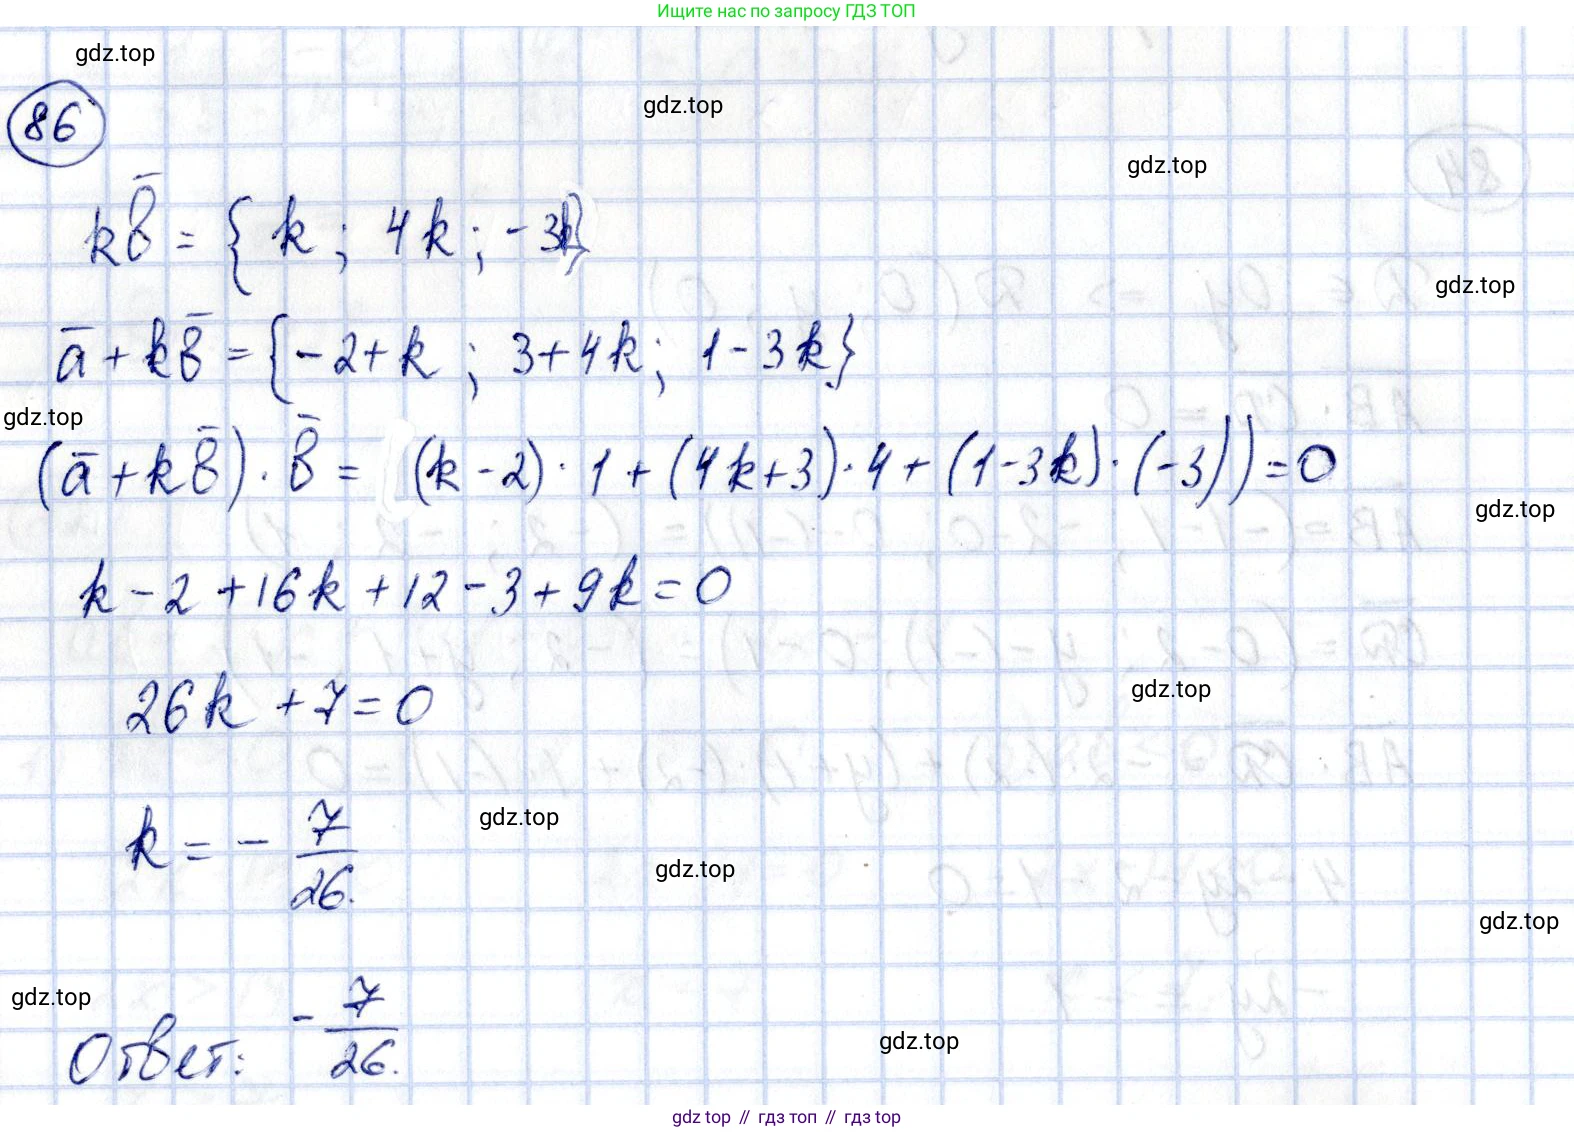 Ищите нас по запросу ГДЗ ТОП
gdz.top
86
gdz.top
gdz.top
84
kb̄ = { k ; 4k ; -3k}
gdz.top
ā + kb̄ = {-2+k ; 3+4k ; 1-3k}
gdz.top
(ā + kb̄) · b̄ = (k-2) · 1 + (4k+3) · 4 + (1-3k) · (-3)) = 0
gdz.top
k - 2 + 16k + 12 - 3 + 9k = 0
26k + 7 = 0
gdz.top
k = - 7/26.
gdz.top
gdz.top
gdz.top
gdz.top
Ответ: - 7/26.
gdz.top
gdz top // гдз топ // гдз top